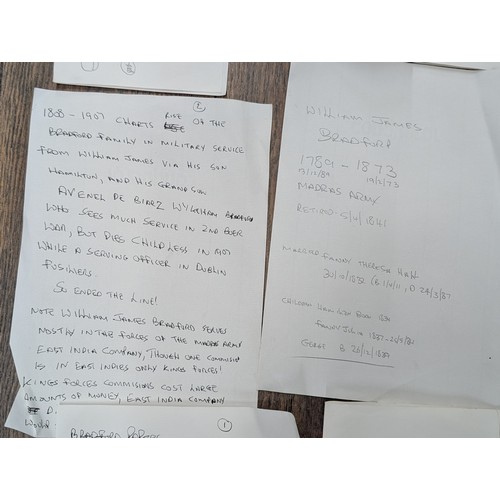 ②
1808 - 1907 CHARTS RISE OF THE
BRADFORD FAMILY IN MILITARY SERVICE
FROM WILLIAM JAMES VIA HIS SON
HAMILTON, AND HIS GRANDSON
AVENEL DE BIARZ WYKEHAM BRADFORD
WHO SEES MUCH SERVICE IN 2ND BOER
WAR, BUT DIES CHILDLESS IN 1907
WHILE A SERVING OFFICER IN DUBLIN
FUSILIERS.
SO ENDED THE LINE!
NOTE WILLIAM JAMES BRADFORD SERVES
MOSTLY IN THE FORCES OF THE MADRAS ARMY
EAST INDIA COMPANY, THOUGH ONE COMMISION
IS IN EAST INDIES ONLY KINGS FORCES!
KINGS FORCES COMMISIONS COST LARGE
AMOUNTS OF MONEY, EAST INDIA COMPANY
D.
WOULD
①
BRADFORD
WILLIAM JAMES
BRADFORD
1789 - 1873
13/12/89 19/2/73
MADRAS ARMY
RETIRED 5/4/1841
MARRIED FANNY THERESA HALL
30/10/1832 (B. 1/9/11, D 24/3/87
CHILDREN HAMILTON BORN 1834
FANNY JULIA 1837 -
B 28/12/1838